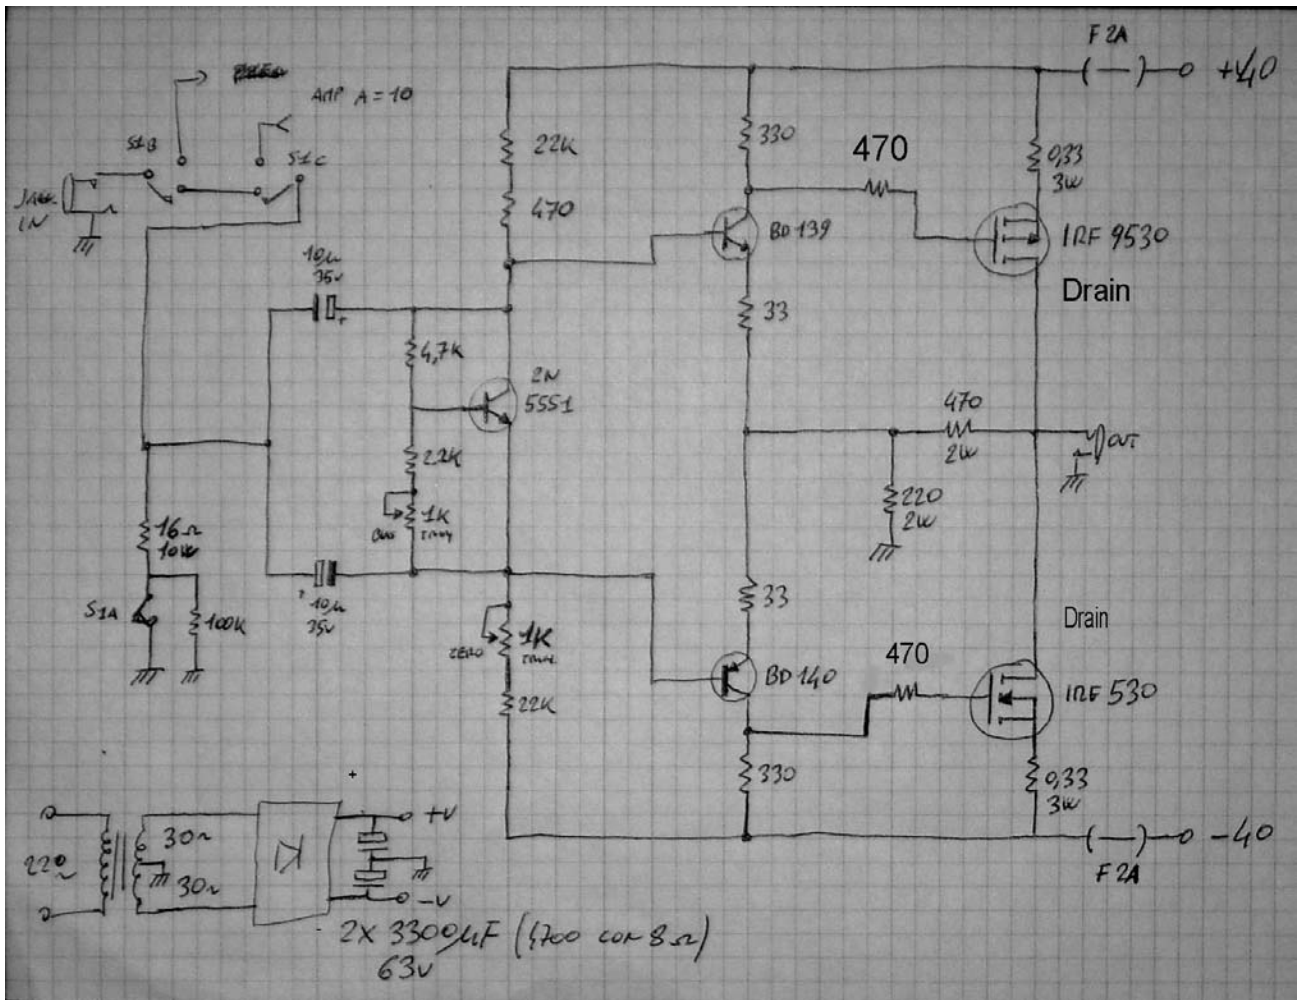 F 2A
+40
AMP A = 10
S1B
S1C
JACK
IN
22K
470
330
470
0,33
3W
BD 139
IRF 9530
Drain
10µ
35V
+
33
4,7K
2N
5551
470
2W
OUT
22K
220
2W
1K
16Ω
10W
S1A
100K
10µ
35V
33
Drain
ZERO
1K
BD 140
470
IRF 530
22K
330
0,33
3W
-40
F 2A
220
~
30~
30~
+V
-V
2X 3300µF (4700 con 8Ω)
63V